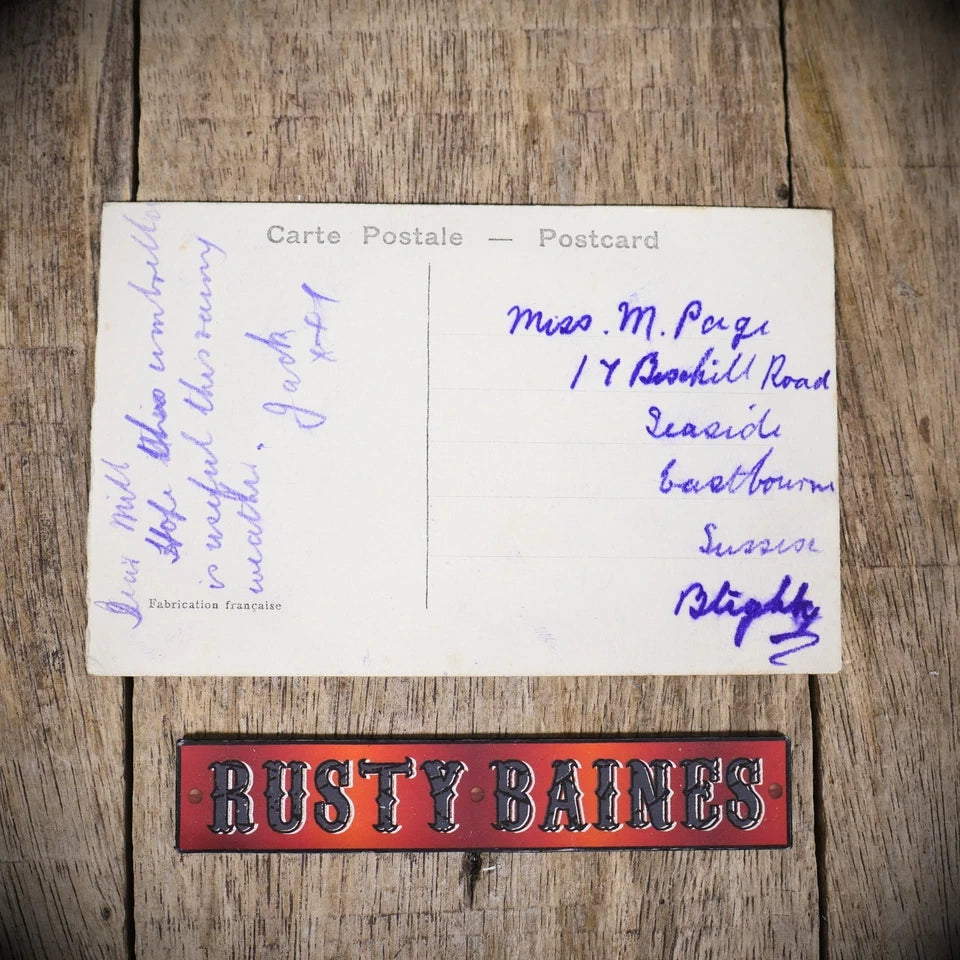 Carte Postale — Postcard
Dear Mill
Hope this umbrella
is useful this rainy
weather.
Jack
xxx
Miss. M. Page
17 Bexhill Road
Seaside
Eastbourne
Sussex
Blighty
Fabrication française
RUSTY BAINES